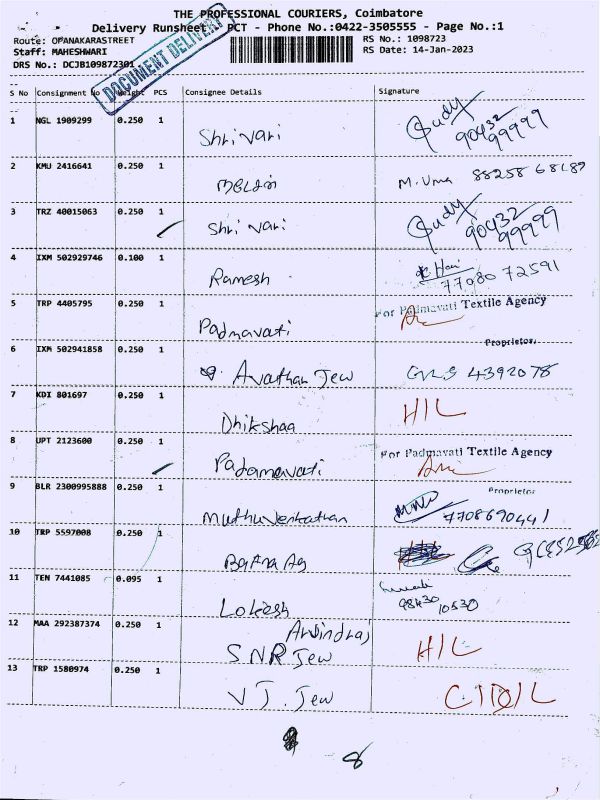 THE PROFESSIONAL COURIERS, Coimbatore
Delivery Runsheet PCT - Phone No.:0422-3505555 - Page No.:1
Route: OPANAKARASTREET RS No.: 1098723
Staff: MAHESHWARI RS Date: 14-Jan-2023
DRS No.: DCJB109872301
DOCUMENT DELIVERY
S No Consignment No Weight PCS Consignee Details Signature
1 NGL 1909299 0.250 1 Shri vari 90432 99999
2 KMU 2416641 0.250 1 M. Uma 88258 68689
3 TRZ 40015063 0.250 1 Shri vari 90432 99999
4 IXM 502929746 0.100 1 Ramesh Hari 77080 72591
5 TRP 4405795 0.250 1 Padmavati For Padmavati Textile Agency
Proprietor.
6 IXM 502941858 0.250 1 Avathan Jew 4392078
7 KDI 801697 0.250 1 Dhikshaa H/L
8 UPT 2123600 0.250 1 Padamavati For Padmavati Textile Agency
Proprietor
9 BLR 2300995888 0.250 1 Muthuvenkathan 7708690441
10 TRP 5597008 0.250 1
11 TEN 7441085 0.095 1 Lokesh 98430 10530
12 MAA 292387374 0.250 1 Arvindraj
SNR Jew H/L
13 TRP 1580974 0.250 1 VJ. Jew
8